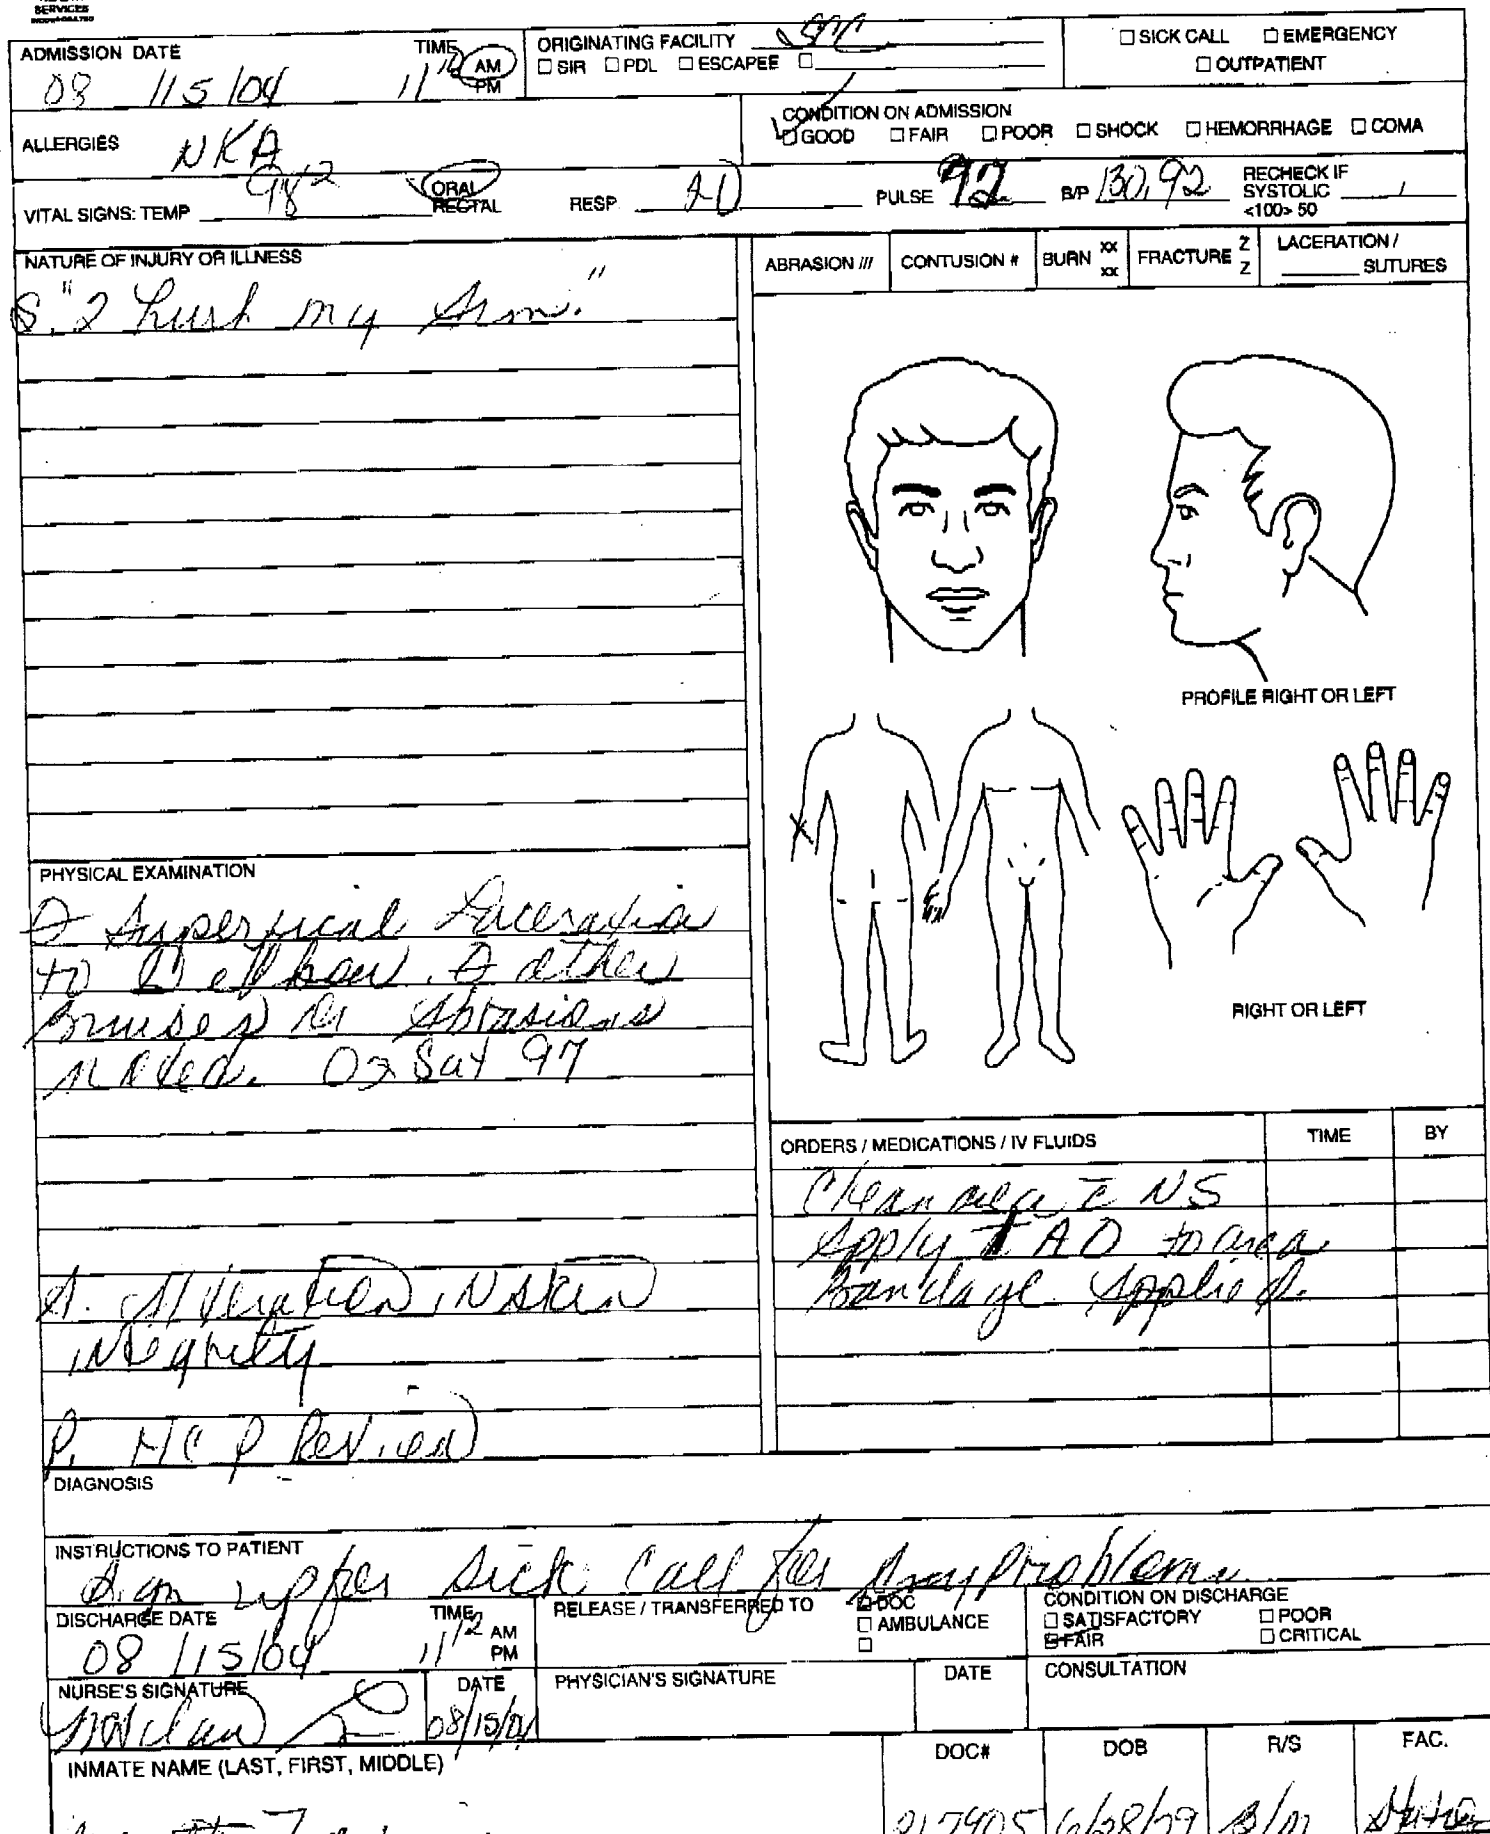 SERVICES
ADMISSION DATE
08 / 15 / 04
TIME
11 AM
PM
ORIGINATING FACILITY
☐ SIR ☐ PDL ☐ ESCAPEE ☐
☐ SICK CALL ☐ EMERGENCY
☐ OUTPATIENT
ALLERGIES NKA
CONDITION ON ADMISSION
☑ GOOD ☐ FAIR ☐ POOR ☐ SHOCK ☐ HEMORRHAGE ☐ COMA
VITAL SIGNS: TEMP 98²
ORAL
RECTAL
RESP. 20
PULSE 92
B/P 130, 92
RECHECK IF
SYSTOLIC /
<100> 50
NATURE OF INJURY OR ILLNESS
S. "I hurt my arm."
ABRASION ///
CONTUSION #
BURN xx
xx
FRACTURE Z
Z
LACERATION /
SUTURES
PROFILE RIGHT OR LEFT
RIGHT OR LEFT
PHYSICAL EXAMINATION
Superficial Laceration
to elbow. other
Bruises or Abrasions
noted. O2 Sat 97
A. Alteration, N skin
integrity
P. HCP Review
ORDERS / MEDICATIONS / IV FLUIDS
TIME
BY
Clean area c̄ NS
Apply TAO to area
Bandage Applied.
DIAGNOSIS
INSTRUCTIONS TO PATIENT
Sign up for Sick Call for Any Problems.
DISCHARGE DATE
08 / 15 / 04
TIME
11¹² AM
PM
RELEASE / TRANSFERRED TO
☑ DOC
☐ AMBULANCE
☐
CONDITION ON DISCHARGE
☐ SATISFACTORY ☐ POOR
☑ FAIR ☐ CRITICAL
NURSE'S SIGNATURE
DATE
08/15/04
PHYSICIAN'S SIGNATURE
DATE
CONSULTATION
INMATE NAME (LAST, FIRST, MIDDLE)
DOC#
217905
DOB
6/28/79
R/S
B/M
FAC.